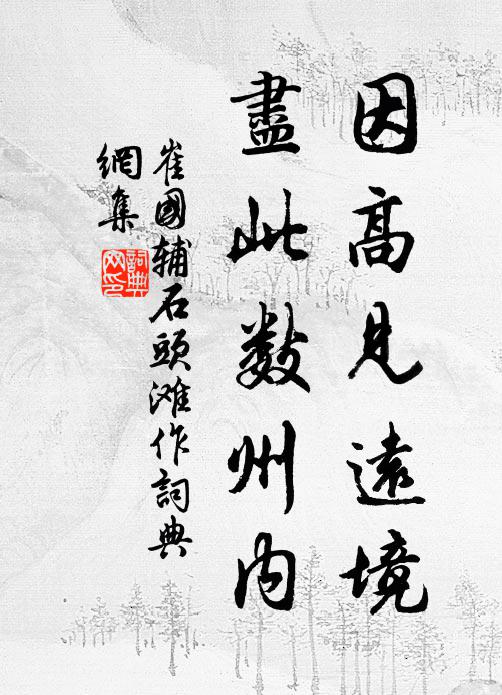 因高見遠境
盡此數州内
崔國辅石頭滩作詞典
網集
詞典
网印